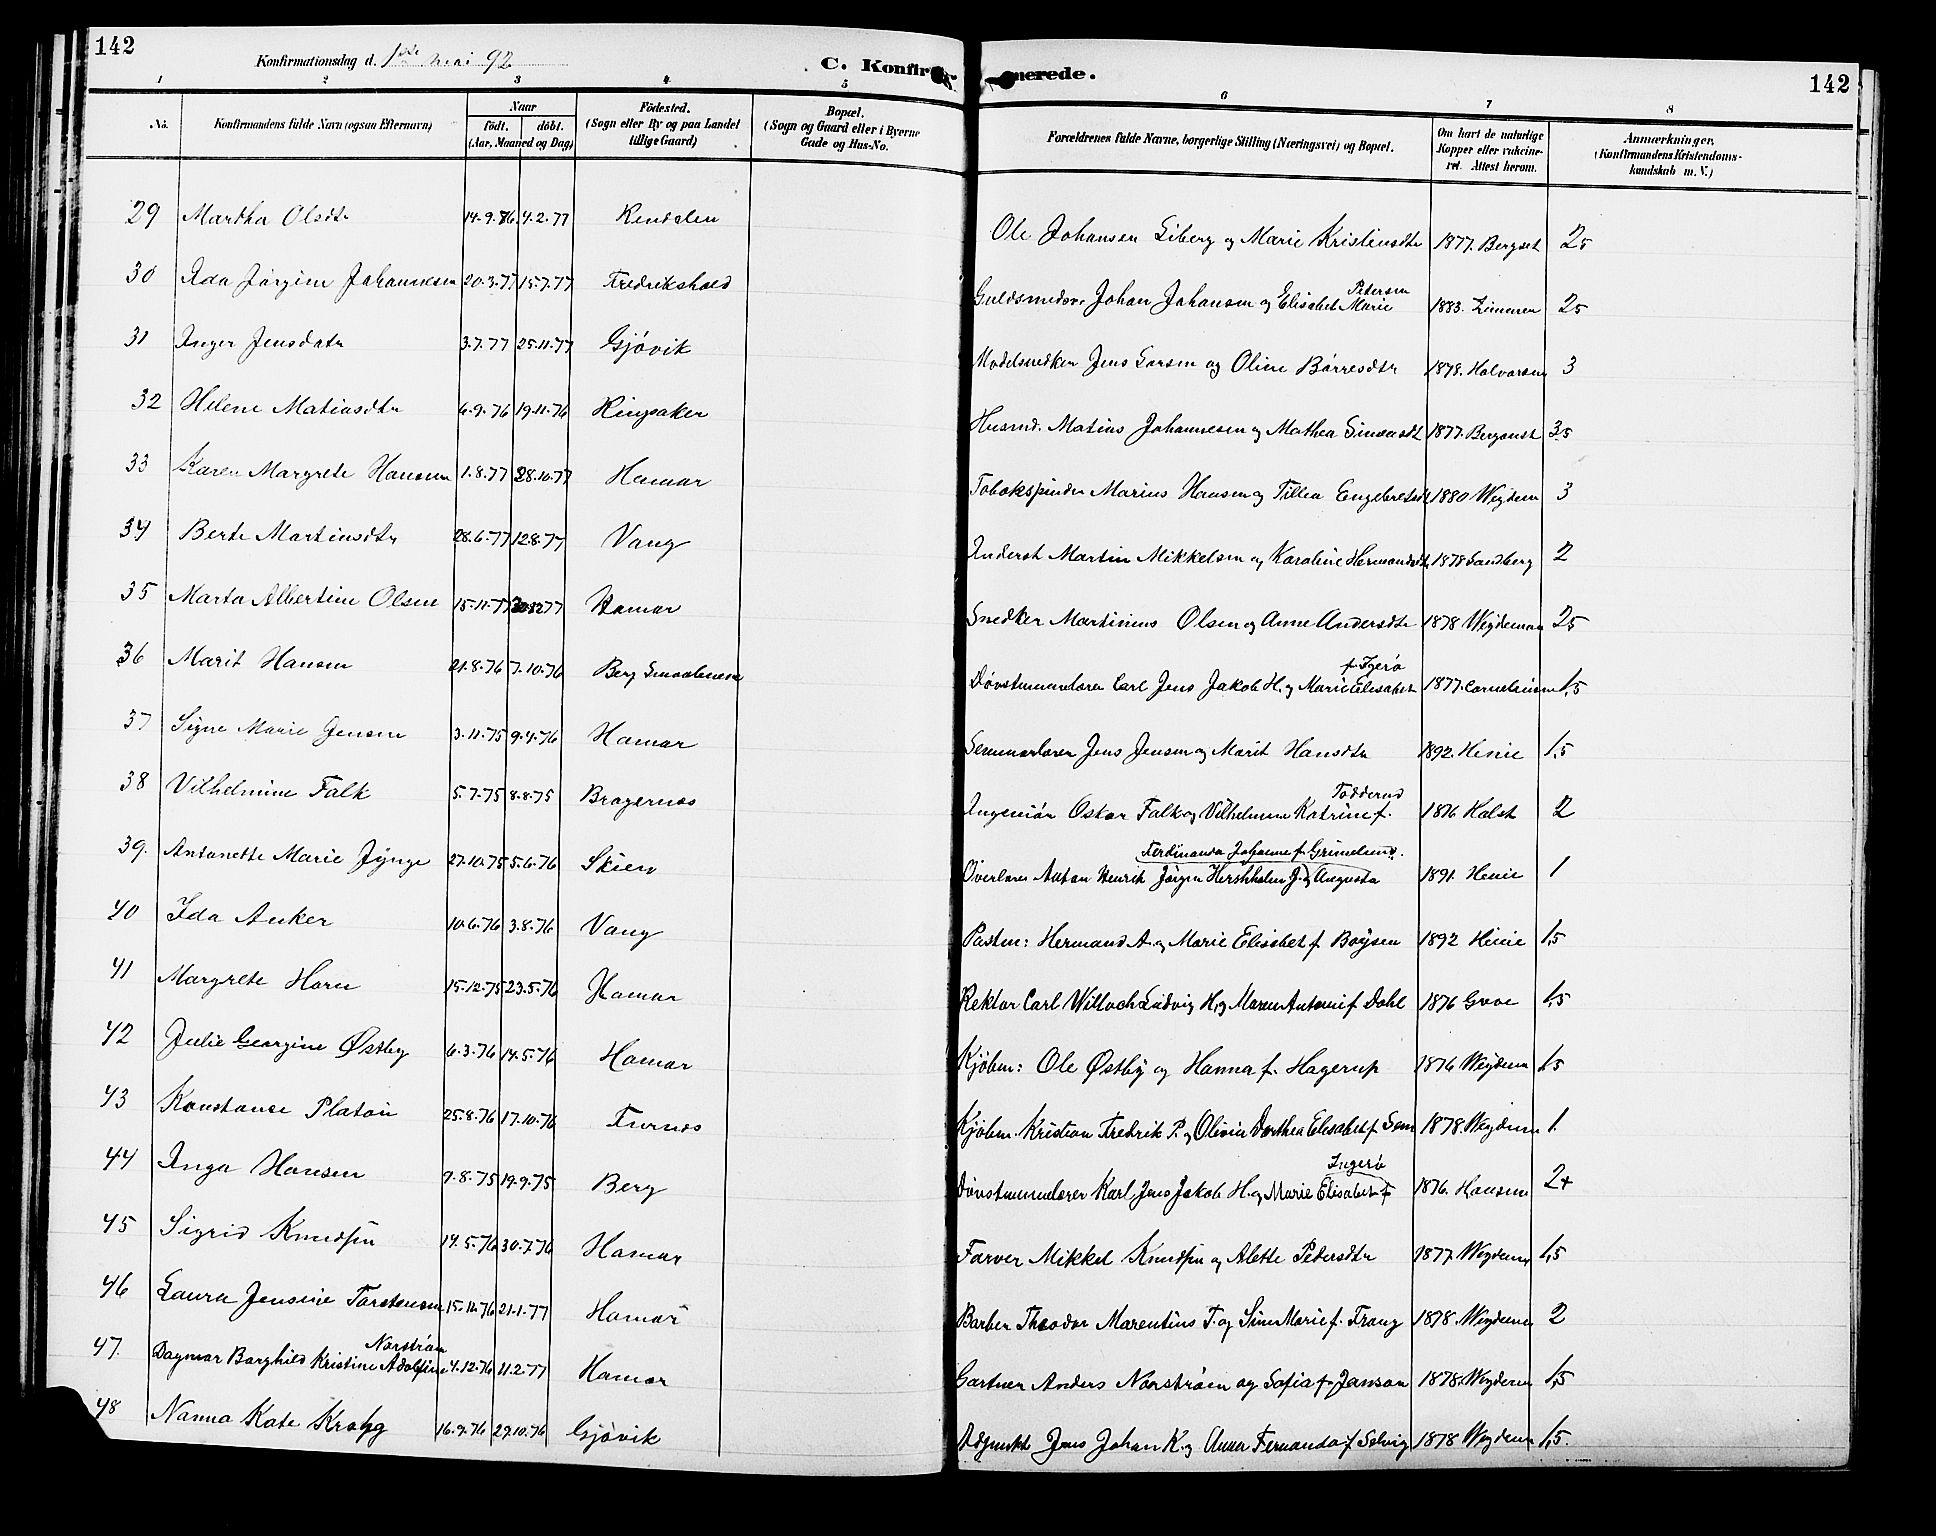 142
Konfirmationsdag d. 1ste mai 92
C. Konfirmerede.
142
1 2 3 4 5 6 7 8
No.
Konfirmandens fulde Navn (ogsaa Efternavn)
Naar
födt. döbt.
(Aar, Maaned og Dag)
Födested.
(Sogn eller By og paa Landet
tillige Gaard)
Bopæl.
(Sogn og Gaard eller i Byerne
Gade og Hus-No.
Forældrenes fulde Navne, borgerlige Stilling (Næringsvei) og Bopæl.
Om havt de naturlige
Kopper eller vakcine-
ret. Attest herom.
Anmærkninger.
(Konfirmandens Kristendoms-
kundskab m. V.)
29 Martha Olsdtr 14.9.76 4.2.77 Rendalen Ole Johansen Liberg og Marie Kristiansdtr 1877. Bergset 25
30 Ida Jørgine Johannesen 20.3.77 15.7.77 Fredrikshald Guldsmedsv. Johan Johansen og Elisabet Marie Petersen 1883. Zimmer 25
31 Inger Jensdatr 3.7.77 25.11.77 Gjövik Modelsnedker Jens Larsen og Oline Börresdtr 1878. Halvorsen 3
32 Helene Matiasdtr 6.9.76 19.11.76 Ringsaker Husmd. Matias Johannesen og Mathea Simensdt 1877. 3.5
33 Karen Margrete Hansen 1.8.77 28.10.77 Hamar Tobakspinder Marius Hansen og Tillea Engebretsdt 1880 Weydem 3
34 Berte Martinsdtr 28.6.77 12.8.77 Vang Inderst Martin Mikkelsen og Karoline Hermandsdtr 1878 Sandberg 2
35 Marta Albertine Olsen 15.11.77 30.12.77 Hamar Snedker Martinius Olsen og Anne Andersdtr 1878 Weydeman 25
36 Marit Hansen 21.8.76 7.10.76 Berg Smaalenene Døvstummelærer Carl Jens Jakob H. og Marie Elisabet f. Igerö 1877. Corneliusen 1,5
37 Signe Marie Jensen 3.11.75 9.4.76 Hamar Seminarlærer Jens Jensen og Marit Hansdtr 1892. Henie 1,5
38 Vilhelmine Falk 5.7.75 8.8.75 Bragernæs Ingeniør Oskar Falk og Vilhelmine Katrine f. Todderud 1876 Holst 2
39. Antonette Marie Jynge 27.10.75 5.6.76 Skien Overlærer Anton Henrik Jørgen Hershholm J. og Augusta Ferdinanda Johanne f. Grimelund. 1891. Henie 1
40 Ida Anker 10.6.76 3.8.76 Vang Pastor: Hermand A. og Marie Elisabet f. Boysen 1892 Henie 1,5
41 Margrete Horn 15.12.75 23.5.76 Hamar Rektor Carl Willoch Ludvig H. og Maren Antonie f. Dahl 1876 Groe 1,5
42 Julie Georgine Østby 6.3.76 14.5.76 Hamar Kjøbm: Ole Østby og Hanna f. Hagerup 1876 Weydem 1,5
43 Konstance Platou 25.8.76 17.10.76 Furnæs Kjøbm. Kristian Fredrik P. og Olivia Dorthea Elisabet f. Sem 1878. Weydem 1.
44 Inga Hansen 9.8.75 19.9.75 Berg Døvstummelærer Karl Jens Jakob H. og Marie Elisabet f. Ingerö 1876. Hansen 2+
45 Sigrid Knudsen 14.5.76 30.7.76 Hamar Farver Mikkel Knudsen og Alette Pedersdtr 1877. Weydem 1,5
46 Laura Jensine Torstensen 15.12.76 21.1.77 Hamar Barber Theodor Marentius T. og Sine Marie f. Frang 1878. Weydem 2
47. Dagmar Borghild Kristine Adolfine Norström 4.12.76 11.2.77 Hamar Gartner Anders Norström og Sofia f. Janson 1878. Weydem 1,5
48 Nanna Kate Krogg 16.9.76 29.10.76 Gjövik Adjunkt Jens Johan K. og Anna Fernanda f. Selvig 1878 Weydem 1,5.